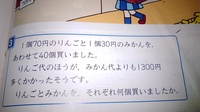 1個70円のりんごと1個30円のみかんを、
あわせて40個買いました。
りんご代のほうが、みかん代よりも1300円
多くかかったそうです。
りんごとみかんを、それぞれ何個買いましたか。